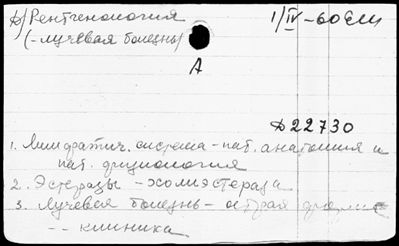 А) Рентгенология 1/IV-60 ЕМ
(-лучевая болезнь)
А
Д 22730
1. Лимфатич. система - пат. анатомия и
пат. физиология
2. Эстеразы - холиэстераза
3. Лучевая болезнь - острая
-- клиника